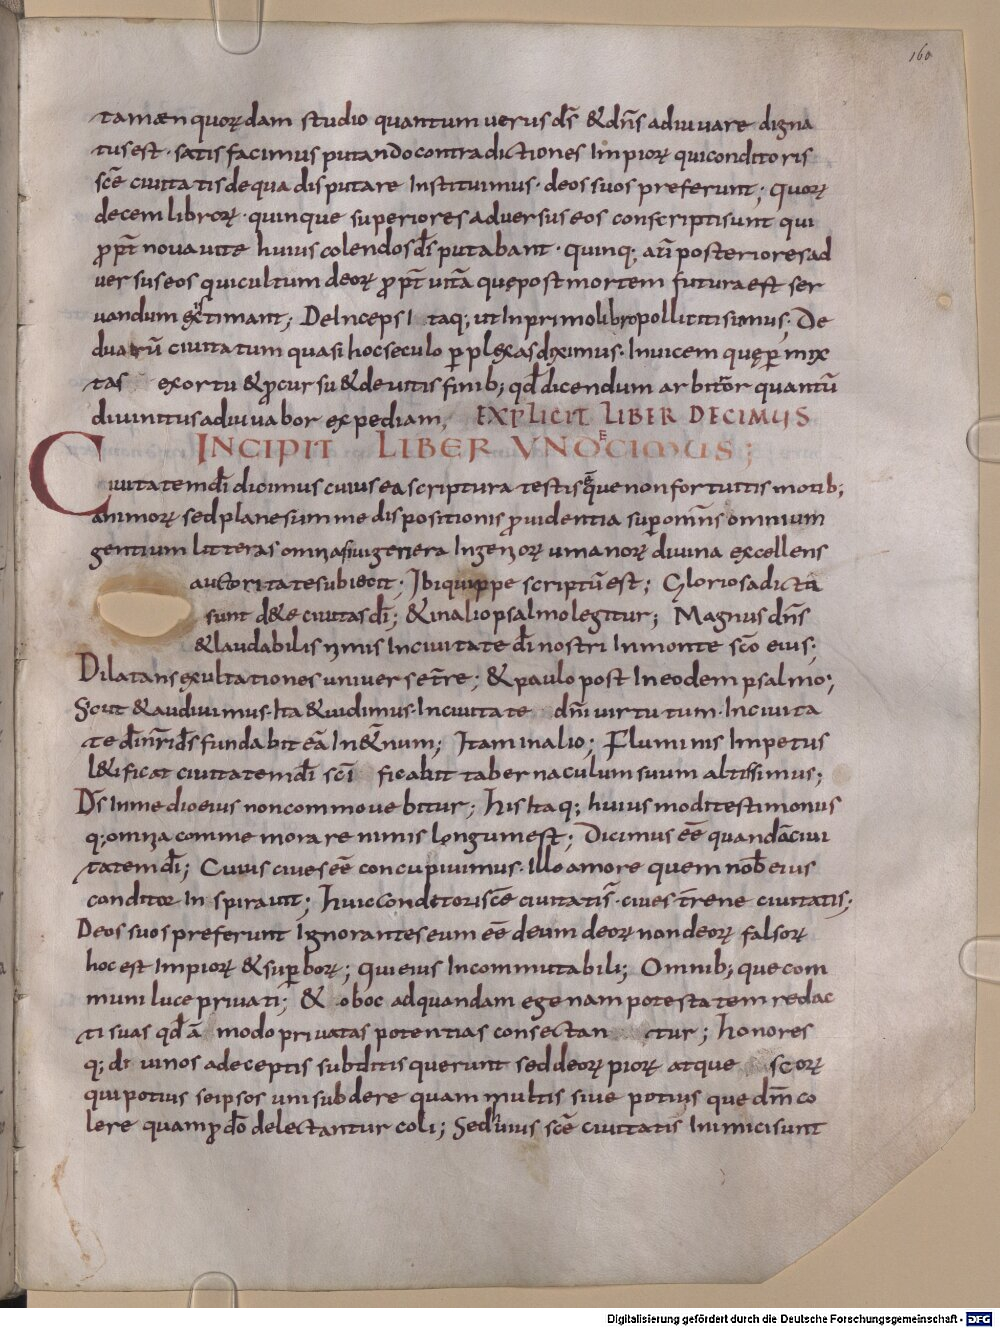 160
tamen quorꝝdam studio quantum uerus ds̄ & dn̄s adiuuare digna
tus est · satisfacimus putando contradictiones Impiorꝝ qui conditoris
scē ciuitatis de qua disputare Instituimus · deos suos preferunt ; quorꝝ
decem librorꝝ · quinque superiores aduersus eos conscripti sunt qui
ꝓpt̄ noua uite huius colendos dī putabant · quinq; aū posteriores ad
uersus eos qui cultum deorꝝ ꝓpt̄ uitā que post mortem futura est ser
uandum extimant ; Deinceps Itaq; ut In primo libro polliti sumus ; De
duarū ciuitatum quas In hoc seculo perplexas diximus · Inuicem quę permix
tas exortu & ꝓcursu & deuitis finib; qd̄ dicendum arbitror quantū
diuinitus adiuuabor expediam, EXPLICIT LIBER DECIMUS
INCIPIT LIBER VNDECIMUS ;
Ciuitatem dī dicimus cuius ea scriptura testis est quę non fortuitis motib;
animorꝝ sed plane summe dispositionis ꝓuidentia super omn̄s omnium
gentium litteras omnia sui genera Ingeniorꝝ umanorꝝ diuina excellens
autoritate subiecit ; Ibi quippe scriptū est ; Gloriosa dicta
sunt de te ciuitas dī ; & in alio psalmo legitur ; Magnus dn̄s
& laudabilis nimis In ciuitate dī nostri In monte scō eius ;
Dilatans exultationes uniuerse tr̄re ; & paulo post In eodem psalmo ;
Sicut & audiuimus · Ita & uidimus · In ciuitate dn̄i uirtutum · In ciuita
te dī nr̄i ds̄ fundabit eā In &̄rnum ; Itam in alio ; Fluminis Impetus
l&ificat ciuitatem dī scīficabit tabernaculum suum altissimus ;
Ds̄ In medio eius non commouebitur ; His Itaq; huiusmodi testimoniis
q; omnia commemorare nimis longum est ; Dicimus eē quandā ciui
tatem dī ; Cuius ciues eē concupiuimus · Illo amore quem nob̄ eius
conditor Inspirauit ; Huic conditori scē ciuitatis̄ · ciues tr̄rene ciuitatis ;
Deos suos preferunt Ignorantes eum eē deum deorꝝ non deorꝝ falsorꝝ
hoc est Impiorꝝ & superborꝝ ; qui eius Incommutabili ; Omnib; que com
muni luce priuati ; & ob oc ad quandam egenam potestatem redac
ti suas qd̄ā modo priuatas potentias consectantur ; honores
q; diuinos a deceptis subditis querunt sed deorꝝ piorꝝ atque scorꝝ
qui potius se ipsos uni subdere quam multis siue potius que dm̄ co
lere quam ꝓ dō delectantur coli ; Sed huius scē ciuitatis Inimici sunt
Digitalisierung gefördert durch die Deutsche Forschungsgemeinschaft - DFG